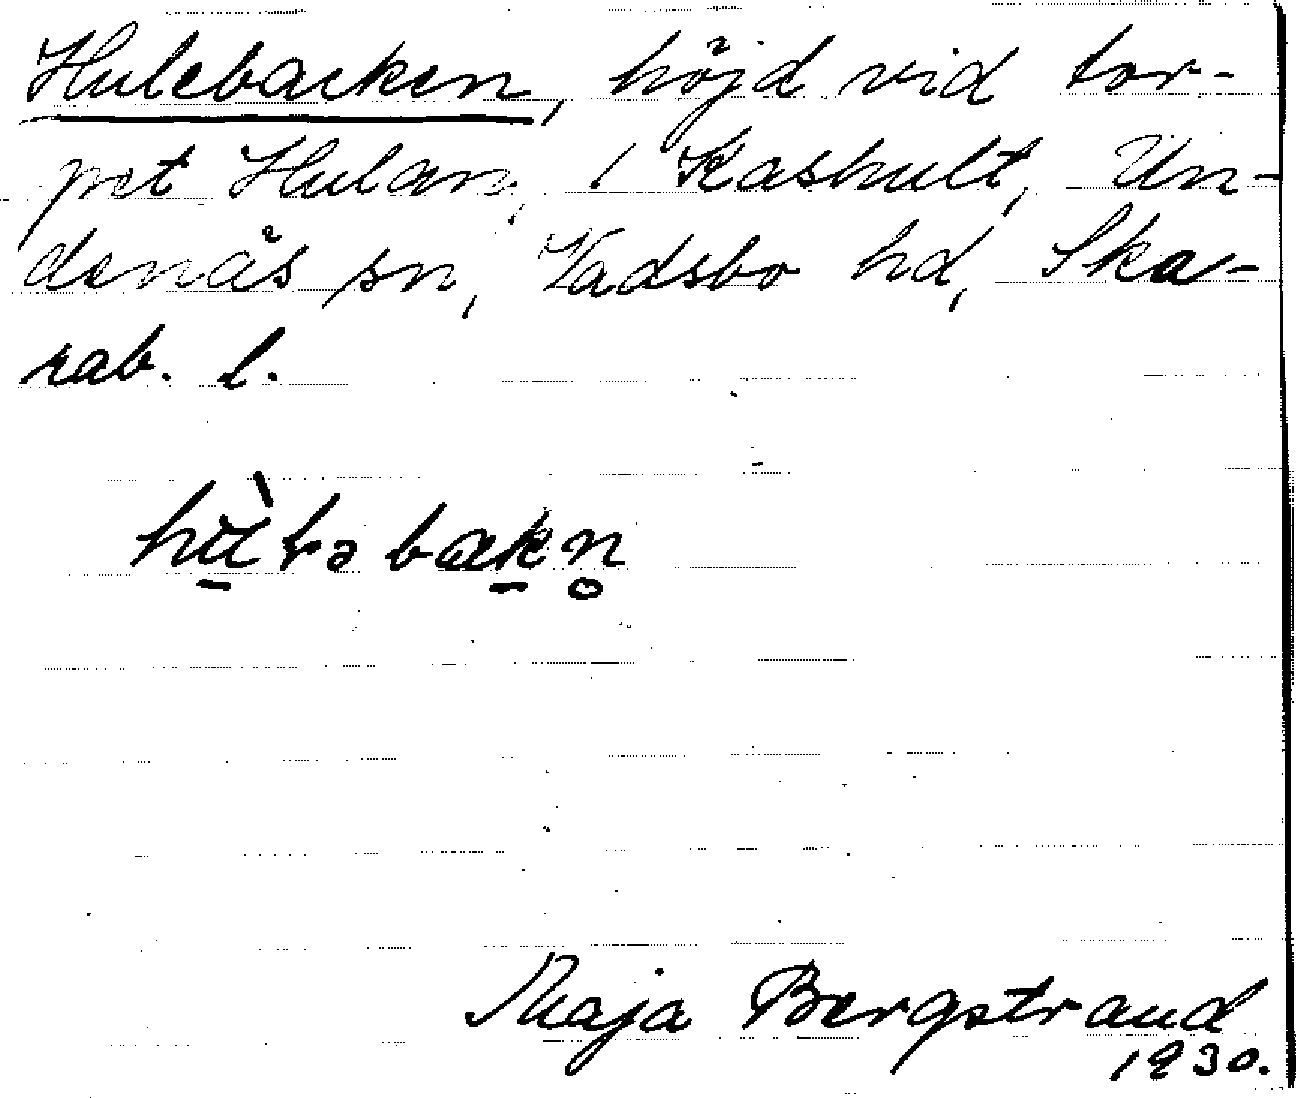 Hulebacken, höjd vid tor-
pet Hulan, i Kashult, Un-
denäs sn, Vadsbo hd, Ska-
rab. l.
Maja Bergstrand
1930.